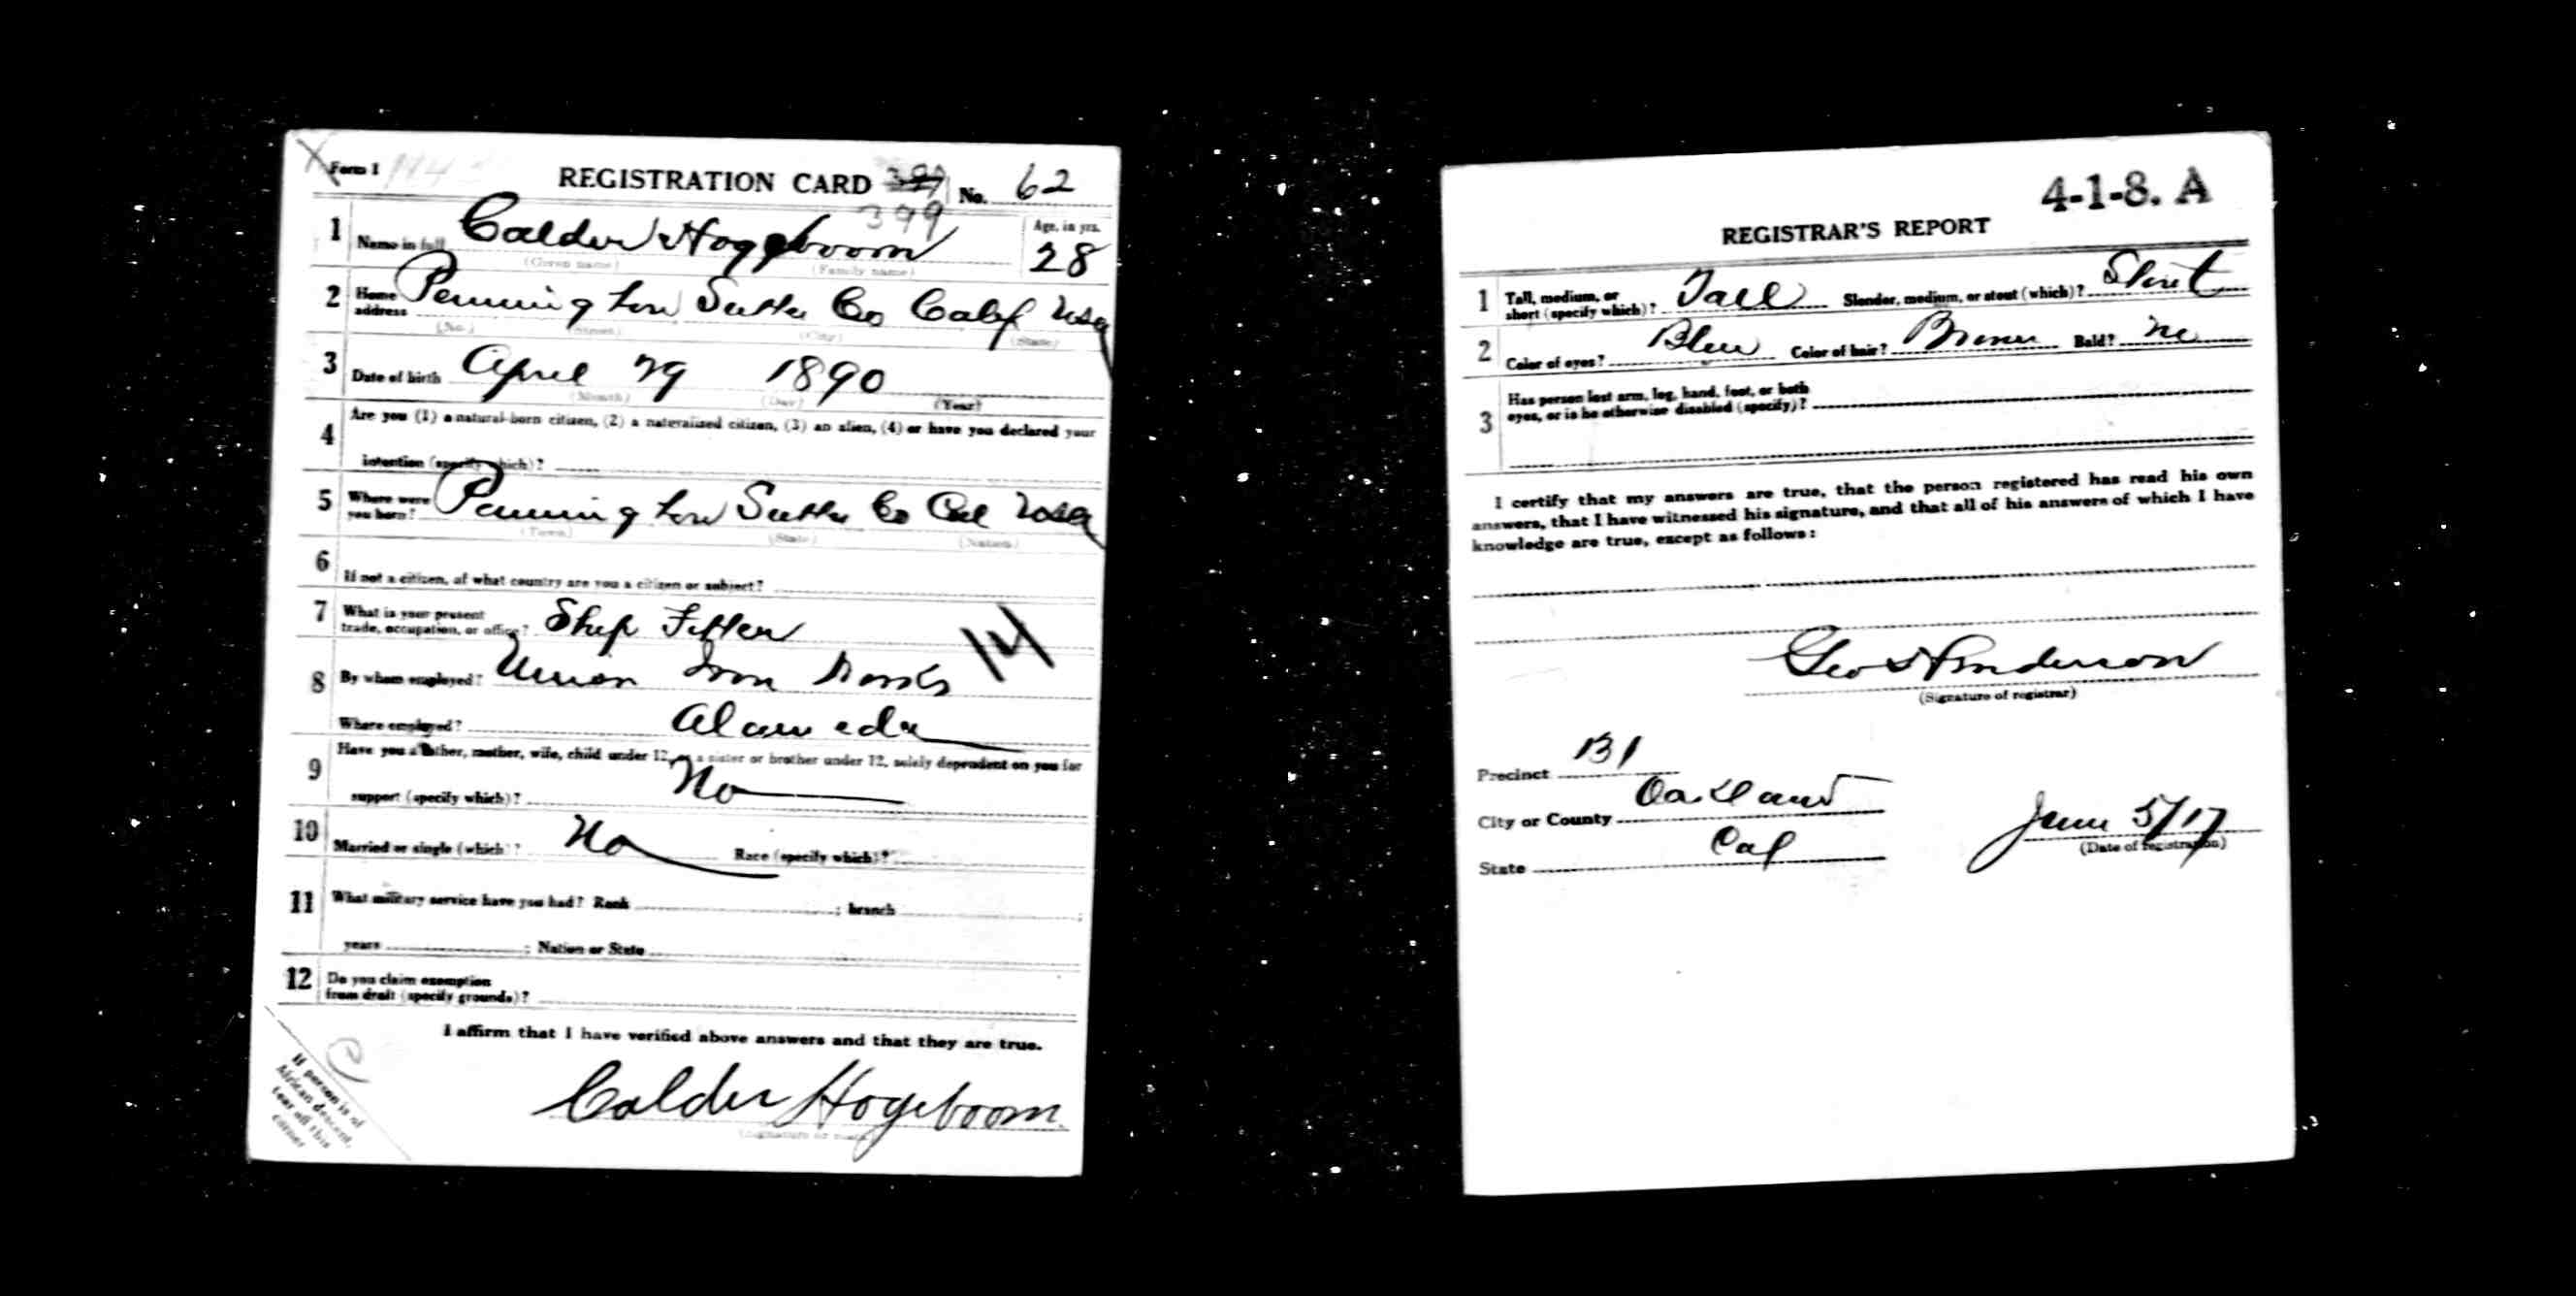 Form 1
REGISTRATION CARD No. 62
399
1 Name in full Calder Hogeboom Age, in yrs. 28
(Given name) (Family name)
2 Home address Pennington Sutter Co Calif Usa
(No.) (Street) (City) (State)
3 Date of birth April 29 1890
(Month) (Day) (Year)
4 Are you (1) a natural-born citizen, (2) a naturalized citizen, (3) an alien, (4) or have you declared your
intention (specify which)?
5 Where were you born? Pennington Sutter Co Cal Usa
(Town) (State) (Nation)
6 If not a citizen, of what country are you a citizen or subject?
7 What is your present
trade, occupation, or office? Ship Fitter
14
8 By whom employed? Union Iron Works
Where employed? Alameda
9 Have you a father, mother, wife, child under 12, or a sister or brother under 12, solely dependent on you for
support (specify which)? No
10 Married or single (which)? No Race (specify which)?
11 What military service have you had? Rank ; branch ;
years ; Nation or State
12 Do you claim exemption
from draft (specify grounds)?
I affirm that I have verified above answers and that they are true.
Calder Hogeboom
(Signature or mark)
If person is of
African descent,
tear off this
corner
4-1-8. A
REGISTRAR'S REPORT
1 Tall, medium, or
short (specify which)? Tall Slender, medium, or stout (which)? Stout
2 Color of eyes? Blue Color of hair? Brown Bald? No
3 Has person lost arm, leg, hand, foot, or both
eyes, or is he otherwise disabled (specify)?
I certify that my answers are true, that the person registered has read his own
answers, that I have witnessed his signature, and that all of his answers of which I have
knowledge are true, except as follows:
Geo Anderson
(Signature of registrar)
Precinct 131
City or County Oakland
State Cal
June 5/17
(Date of registration)